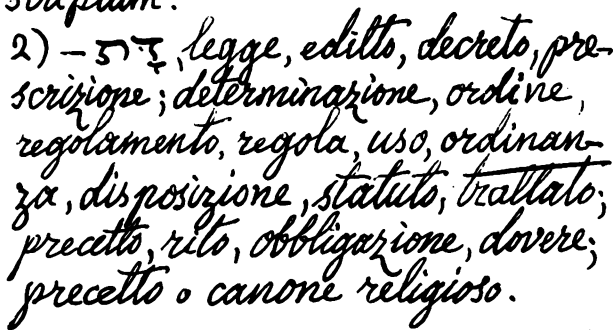 scriptum.
2) – , legge, editto, decreto, pre-
scrizione; determinazione, ordine,
regolamento, regola, uso, ordinan-
za, disposizione, statuto, trattato;
precetto, rito, obbligazione, dovere;
precetto o canone religioso.